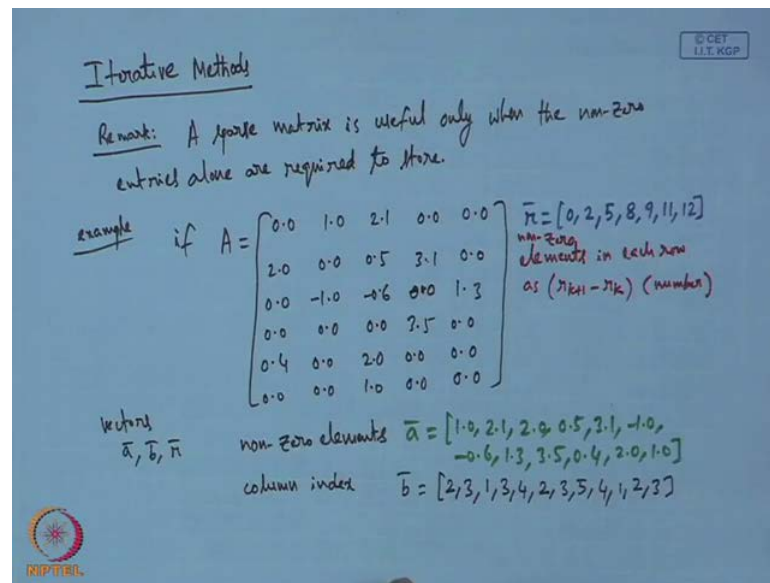 © CET
I.I.T. KGP
Iterative Methods
Remark: A sparse matrix is useful only when the non-zero
entries alone are required to store.
example if A = [0.0 1.0 2.1 0.0 0.0
2.0 0.0 0.5 3.1 0.0
0.0 -1.0 -0.6 0.0 1.3
0.0 0.0 0.0 3.5 0.0
0.4 0.0 2.0 0.0 0.0
0.0 0.0 1.0 0.0 0.0]
r̄ = [0, 2, 5, 8, 9, 11, 12]
non-zero
elements in each row
as (r_{k+1} - r_k) (number)
vectors
ā, b̄, r̄
non-zero elements ā = [1.0, 2.1, 2.0, 0.5, 3.1, -1.0,
-0.6, 1.3, 3.5, 0.4, 2.0, 1.0]
column index b̄ = [2, 3, 1, 3, 4, 2, 3, 5, 4, 1, 2, 3]
NPTEL